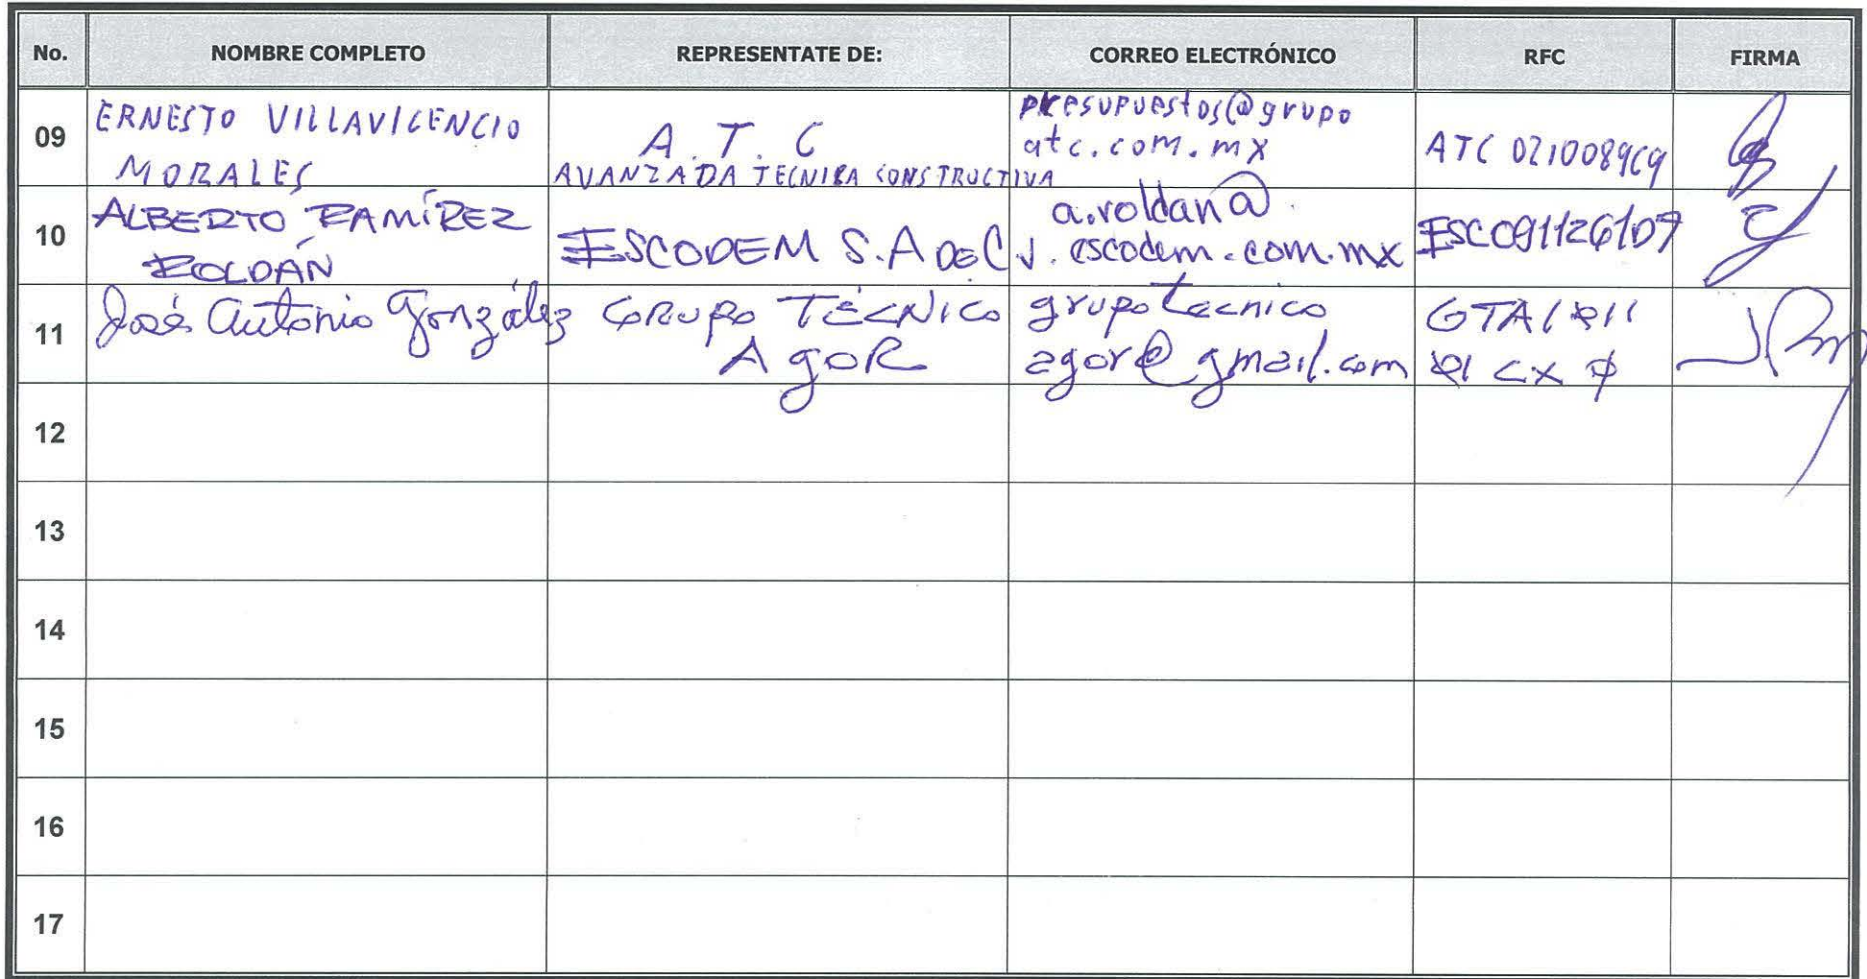 No. NOMBRE COMPLETO REPRESENTATE DE: CORREO ELECTRÓNICO RFC FIRMA
09
ERNESTO VILLAVICENCIO
MORALES
A. T. C
AVANZADA TECNICA CONSTRUCTIVA
presupuestos@grupo
atc.com.mx
ATC 0210089C9
10
ALBERTO RAMÍREZ
ROLDÁN
ESCODEM S.A DE C.V.
a.roldan@
escodem.com.mx
ESC091126107
11
José Antonio González
GRUPO TÉCNICO
AGOR
grupotecnico
agor@gmail.com
12
13
14
15
16
17